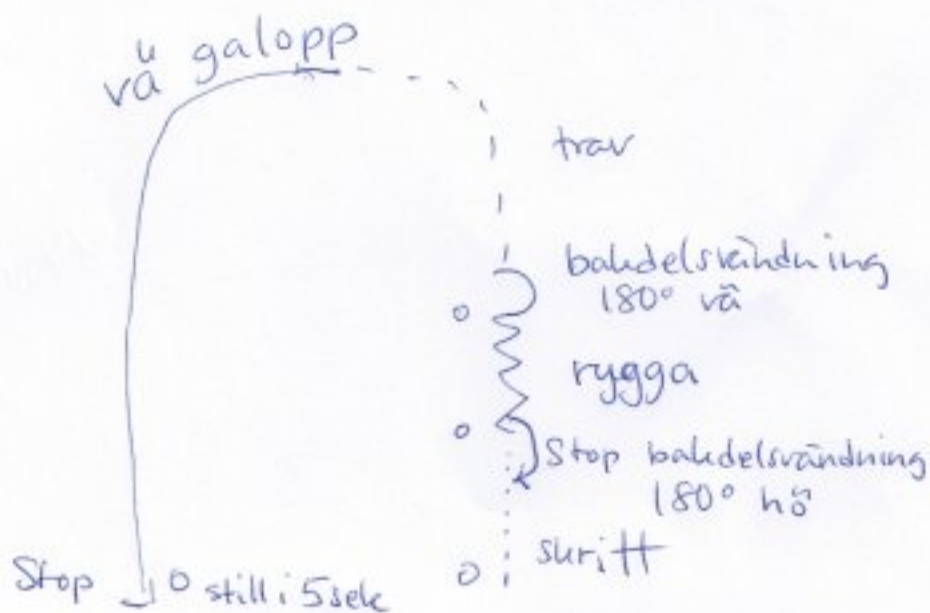 vä galopp
trav
bakdelsvändning
180° vä
rygga
Stop bakdelsvändning
180° hö
skritt
Stop
still i 5 sek